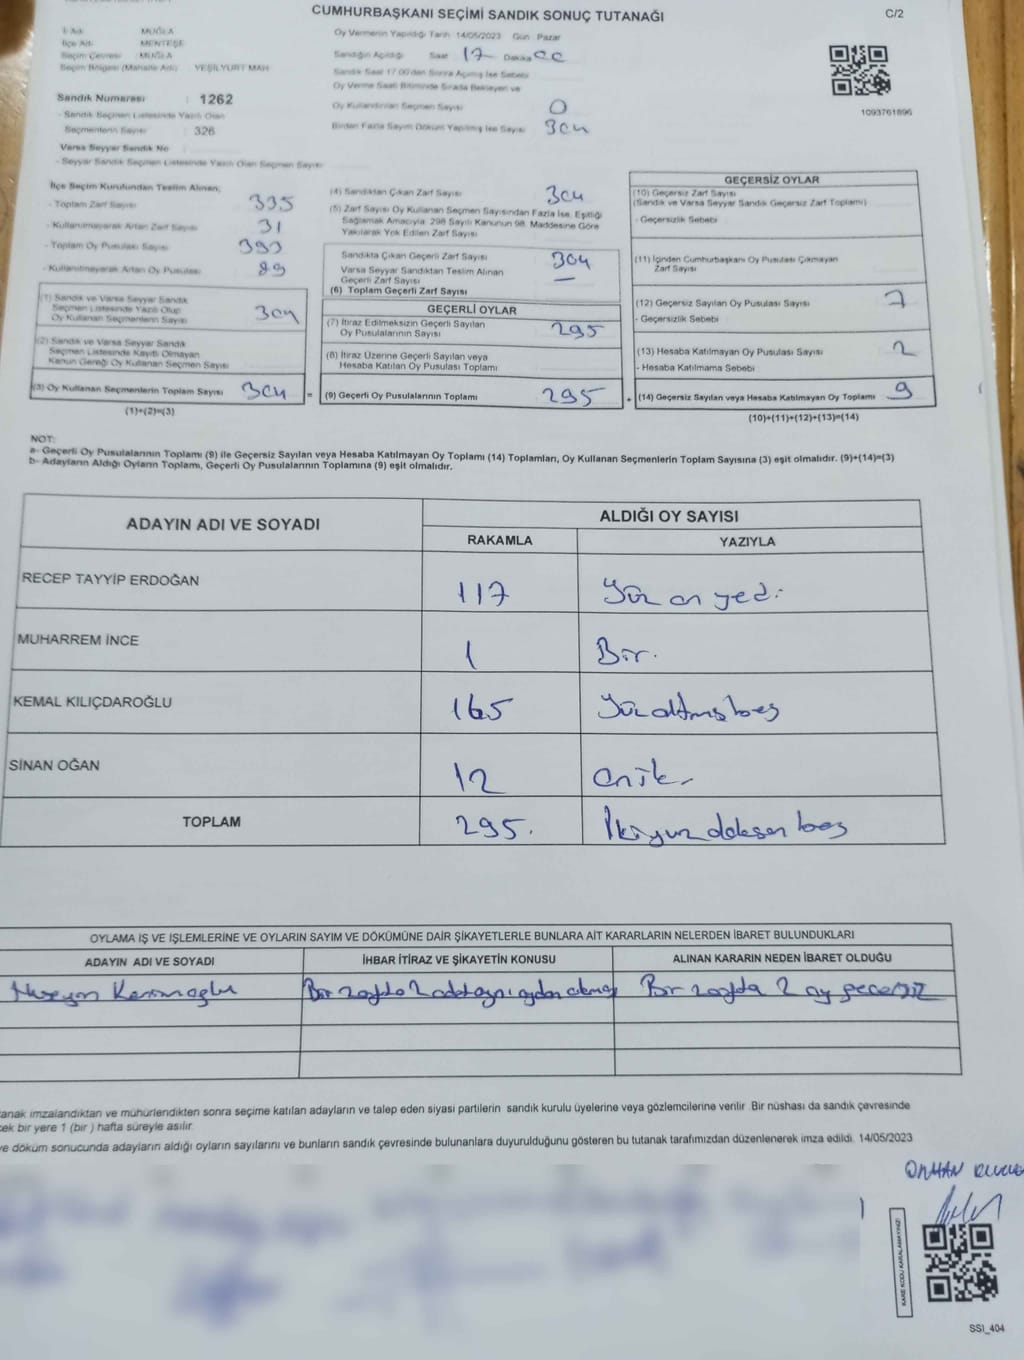 CUMHURBAŞKANI SEÇİMİ SANDIK SONUÇ TUTANAĞI
C/2
İl Adı : MUĞLA
İlçe Adı : MENTEŞE
Seçim Çevresi : MUĞLA
Seçim Bölgesi (Mahalle Adı) : YEŞİLYURT MAH
Sandık Numarası : 1262
- Sandık Seçmen Listesinde Yazılı Olan
Seçmenlerin Sayısı : 326
Varsa Seyyar Sandık No :
- Seyyar Sandık Seçmen Listesinde Yazılı Olan Seçmen Sayısı :
Oy Vermenin Yapıldığı Tarih 14/05/2023 Gün Pazar
Sandığın Açıldığı Saat 17 Dakika 00
Sandık Saat 17:00'den Sonra Açılmış İse Sebebi
Oy Verme Saati Bitiminde Sırada Bekleyen ve
Oy Kullandırılan Seçmen Sayısı 0
Birden Fazla Sayım Döküm Yapılmış İse Sayısı 304
1093761896
İlçe Seçim Kurulundan Teslim Alınan;
- Toplam Zarf Sayısı 335
- Kullanılmayarak Artan Zarf Sayısı 31
- Toplam Oy Pusulası Sayısı 393
- Kullanılmayarak Artan Oy Pusulası 89
(1) Sandık ve Varsa Seyyar Sandık
Seçmen Listesinde Yazılı Olup
Oy Kullanan Seçmenlerin Sayısı 304
(2) Sandık ve Varsa Seyyar Sandık
Seçmen Listesinde Kayıtlı Olmayan
Kanun Gereği Oy Kullanan Seçmen Sayısı
(3) Oy Kullanan Seçmenlerin Toplam Sayısı 304 =
(1)+(2)=(3)
(4) Sandıktan Çıkan Zarf Sayısı 304
(5) Zarf Sayısı Oy Kullanan Seçmen Sayısından Fazla İse, Eşitliği
Sağlamak Amacıyla, 298 Sayılı Kanunun 98. Maddesine Göre
Yakılarak Yok Edilen Zarf Sayısı
Sandıkta Çıkan Geçerli Zarf Sayısı 304
Varsa Seyyar Sandıktan Teslim Alınan
Geçerli Zarf Sayısı —
(6) Toplam Geçerli Zarf Sayısı
GEÇERLİ OYLAR
(7) İtiraz Edilmeksizin Geçerli Sayılan
Oy Pusulalarının Sayısı 295
(8) İtiraz Üzerine Geçerli Sayılan veya
Hesaba Katılan Oy Pusulası Toplamı
(9) Geçerli Oy Pusulalarının Toplamı 295 +
GEÇERSİZ OYLAR
(10) Geçersiz Zarf Sayısı
(Sandık ve Varsa Seyyar Sandık Geçersiz Zarf Toplamı)
- Geçersizlik Sebebi
(11) İçinden Cumhurbaşkanı Oy Pusulası Çıkmayan
Zarf Sayısı
(12) Geçersiz Sayılan Oy Pusulası Sayısı 7
- Geçersizlik Sebebi
(13) Hesaba Katılmayan Oy Pusulası Sayısı 2
- Hesaba Katılmama Sebebi
(14) Geçersiz Sayılan veya Hesaba Katılmayan Oy Toplamı 9
(10)+(11)+(12)+(13)=(14)
NOT:
a- Geçerli Oy Pusulalarının Toplamı (9) ile Geçersiz Sayılan veya Hesaba Katılmayan Oy Toplamı (14) Toplamları, Oy Kullanan Seçmenlerin Toplam Sayısına (3) eşit olmalıdır. (9)+(14)=(3)
b- Adayların Aldığı Oyların Toplamı, Geçerli Oy Pusulalarının Toplamına (9) eşit olmalıdır.
ADAYIN ADI VE SOYADI
ALDIĞI OY SAYISI
RAKAMLA YAZIYLA
RECEP TAYYİP ERDOĞAN 117 Yüz on yedi
MUHARREM İNCE 1 Bir.
KEMAL KILIÇDAROĞLU 165 Yüz altmış beş
SİNAN OĞAN 12 oniki
TOPLAM 295. İkiyüz doksan beş
OYLAMA İŞ VE İŞLEMLERİNE VE OYLARIN SAYIM VE DÖKÜMÜNE DAİR ŞİKAYETLERLE BUNLARA AİT KARARLARIN NELERDEN İBARET BULUNDUKLARI
ADAYIN ADI VE SOYADI İHBAR İTİRAZ VE ŞİKAYETİN KONUSU ALINAN KARARIN NEDEN İBARET OLDUĞU
Bir zarfta 2 adet aynı Bir zarfta 2 oy geçersiz
tanak imzalandıktan ve mühürlendikten sonra seçime katılan adayların ve talep eden siyasi partilerin sandık kurulu üyelerine veya gözlemcilerine verilir. Bir nüshası da sandık çevresinde
cek bir yere 1 (bir ) hafta süreyle asılır.
ve döküm sonucunda adayların aldığı oyların sayılarını ve bunların sandık çevresinde bulunanlara duyurulduğunu gösteren bu tutanak tarafımızdan düzenlenerek imza edildi. 14/05/2023
ORHAN
KARE KODU KARALAMAYINIZ!
SSI_404